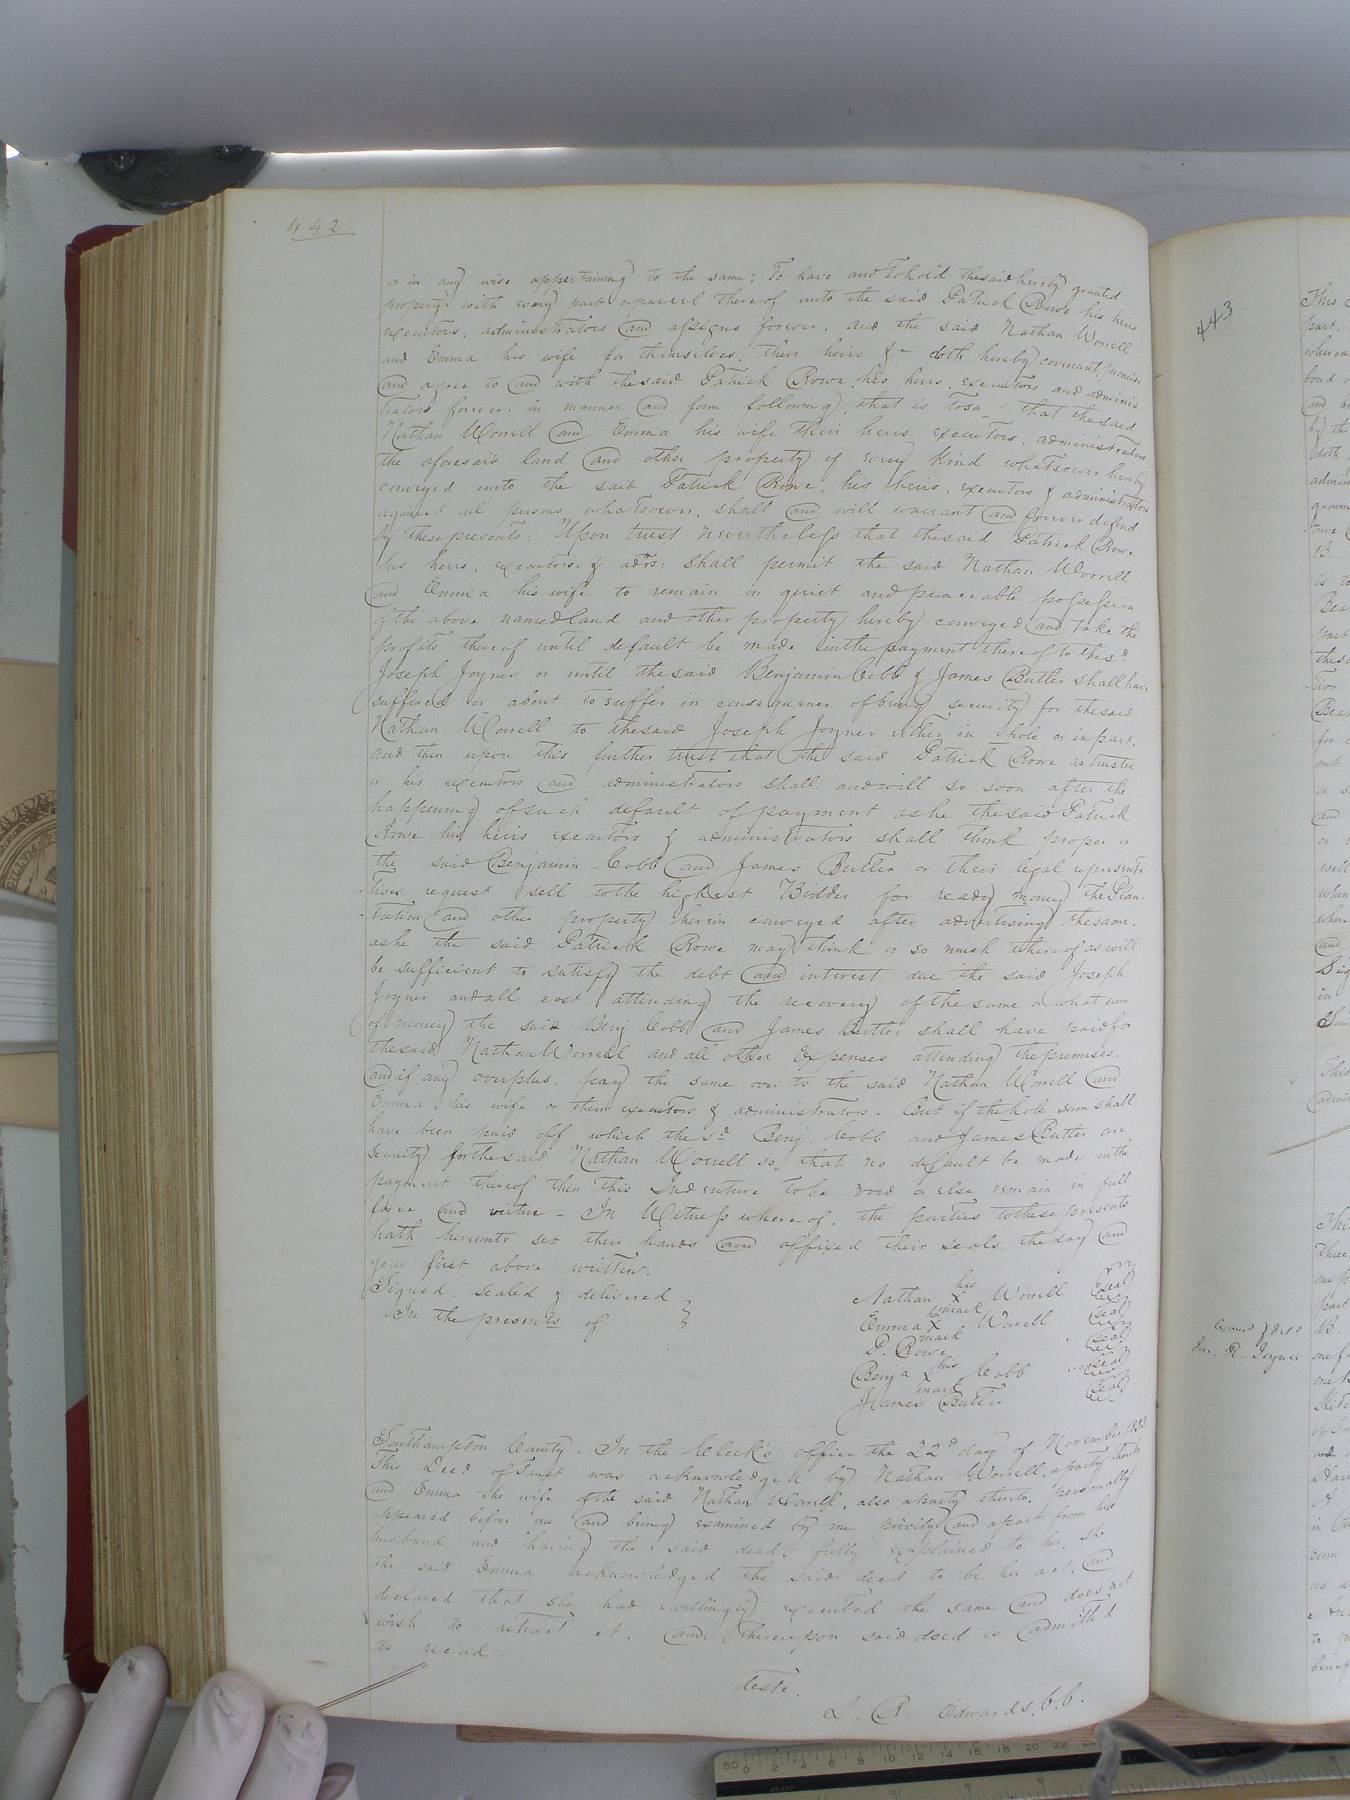 442
or in any wise appertaining to the same; To have and To hold the said hereby granted
property with every part & parcel thereof unto the said Patrick Rowe his heirs
executors, administrators and assigns forever. and the said Nathan Worrell
and Emma his wife for themselves, their heirs &- doth hereby covenant, promise
and agree to and with the said Patrick Rowe, his heirs, executors and adminis
trators forever, in manner and form following, that is To sa : that the said
Nathan Worrell and Emma his wife their heirs, executors, administrators
the aforesaid land and other property of every kind whatsoever hereby
conveyed unto the said Patrick Rowe, his heirs, executors & administrators
against all persons whatsoever, shall and will warrant and forever defend
by these presents: Upon trust nevertheless that the said Patrick Rowe
his heirs, executors, & adrs: shall permit the said Nathan Worrell
and Emma his wife to remain in quiet and peaceable possession
of the above named land and other property hereby conveyed and take the
profits thereof until default be made in the payment thereof to the sd
Joseph Joyner or until the said Benjamin Cobb & James Butler shall have
suffered or about to suffer in consequence of being security for the said
Nathan Worrell to the said Joseph Joyner either in whole or in part.
and then upon this further trust that the said Patrick Rowe as trustee
or his executors and administrators shall and will so soon after the
happening of such default of payment as he the said Patrick
Rowe his heirs executors & administrators shall think proper or
the said Benjamin Cobb and James Butler or their legal representa
tives request sell to the highest Bidder for ready money the Plan-
tation and other property herein conveyed after advertising the same.
as he the said Patrick Rowe may think or so much thereof as will
be sufficient to satisfy the debt and interest due the said Joseph
Joyner and all cost attending the recovery of the same or what sum
of money the said Benj Cobb and James Butler shall have paid for
the said Nathan Worrell and all other Expenses attending the premises.
and if any overplus, pay the same over to the said Nathan Worrell and
Emma his wife or their executors & administrators. But if the hole sum shall
have been paid off which the sd Benj. Cobb and James Butler are
security for the said Nathan Worrell so that no default be made in the
payment thereof then this Indenture to be void or else remain in full
force and virtue - In Witness whereof, the parties to these presents
hath hereunto set their hands and affixed their seals the day and
year first above written.
Signed, sealed & delivered
In the presents of
his
Nathan X Worrell Seal
mark
Emma X Worrell Seal
mark
P. Rowe Seal
his
Benja X Cobb Seal
mark
James Butler Seal
Southampton County. In the Clerk's office the 22d day of November 1833
This Deed of Trust was acknowledged by Nathan Worrell, a party thereto
and Emma the wife of the said Nathan Worrell, also a party thereto, personally
appeared before me and being examined by me privily and apart from her
husband and having the said deed fully explained to her, she
the said Emma acknowledged the said deed to be her act, and
declared that she had willingly executed the same and does not
wish to retract it. and thereupon said deed is admitted
to record.
Teste.
L. R. Edwards, C. C.
443
Jas. R. Joyner